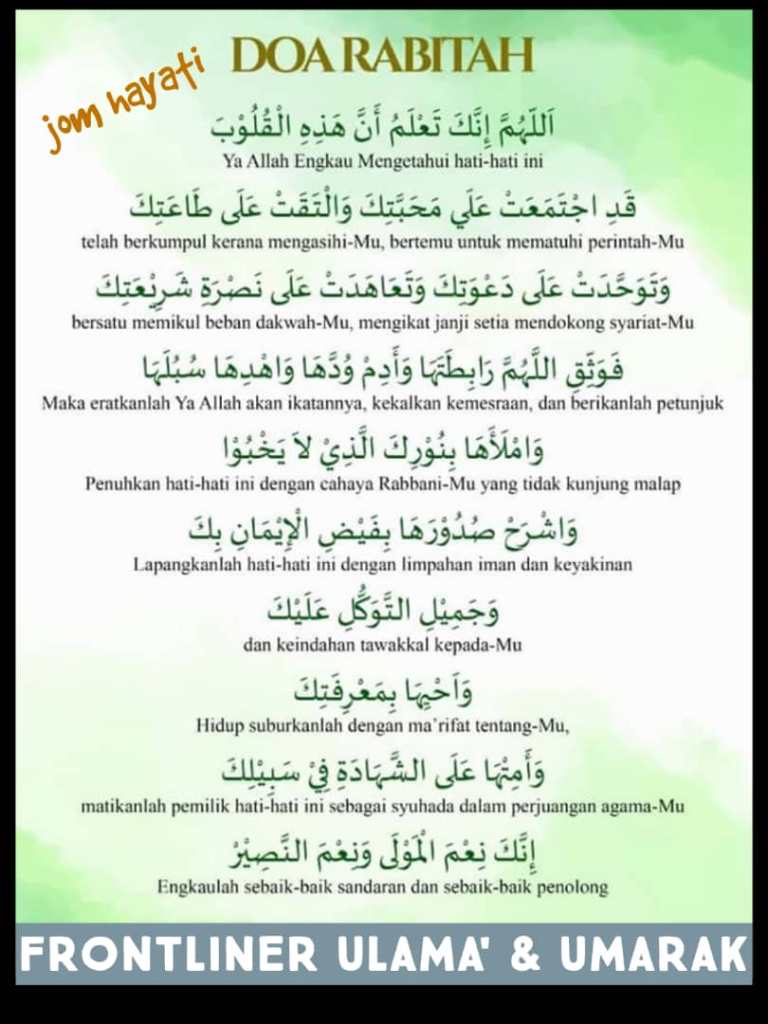 DOA RABITAH
jom hayati
اَللّٰهُمَّ إِنَّكَ تَعْلَمُ أَنَّ هَذِهِ الْقُلُوْبَ
Ya Allah Engkau Mengetahui hati-hati ini
قَدِ اجْتَمَعَتْ عَلَي مَحَبَّتِكَ وَالْتَقَتْ عَلَى طَاعَتِكَ
telah berkumpul kerana mengasihi-Mu, bertemu untuk mematuhi perintah-Mu
وَتَوَحَّدَتْ عَلَى دَعْوَتِكَ وَتَعَاهَدَتْ عَلَى نَصْرَةِ شَرِيْعَتِكَ
bersatu memikul beban dakwah-Mu, mengikat janji setia mendokong syariat-Mu
فَوَثِّقِ اللَّهُمَّ رَابِطَتَهَا وَأَدِمْ وُدَّهَا وَاهْدِهَا سُبُلَهَا
Maka eratkanlah Ya Allah akan ikatannya, kekalkan kemesraan, dan berikanlah petunjuk
وَامْلَأَهَا بِنُوْرِكَ الَّذِيْ لاَ يَخْبُوْا
Penuhkan hati-hati ini dengan cahaya Rabbani-Mu yang tidak kunjung malap
وَاشْرَحْ صُدُوْرَهَا بِفَيْضِ الْإِيْمَانِ بِكَ
Lapangkanlah hati-hati ini dengan limpahan iman dan keyakinan
وَجَمِيْلِ التَّوَكُّلِ عَلَيْكَ
dan keindahan tawakkal kepada-Mu
وَاَحْيِهَا بِمَعْرِفَتِكَ
Hidup suburkanlah dengan ma'rifat tentang-Mu,
وَأَمِتْهَا عَلَى الشَّهَادَةِ فِيْ سَبِيْلِكَ
matikanlah pemilik hati-hati ini sebagai syuhada dalam perjuangan agama-Mu
إِنَّكَ نِعْمَ الْمَوْلَى وَنِعْمَ النَّصِيْرُ
Engkaulah sebaik-baik sandaran dan sebaik-baik penolong
FRONTLINER ULAMA' & UMARAK